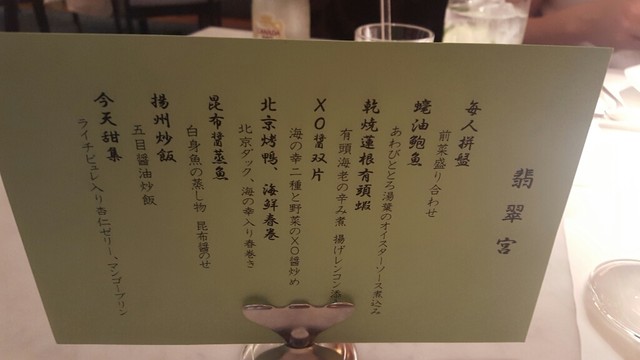 翡翠宮
毎人拼盤
前菜盛り合わせ
蠔油鮑魚
あわびととろ湯葉のオイスターソース煮込み
乾焼蓮根有頭蝦
有頭海老の辛み煮 揚げレンコン添え
XO醤双片
海の幸二種と野菜のXO醤炒め
北京烤鴨、海鮮春巻
北京ダック、海の幸入り春巻き
昆布醤蒸魚
白身魚の蒸し物 昆布醤のせ
揚州炒飯
五目醤油炒飯
今天甜集
ライチピュレ入り杏仁ゼリー、マンゴープリン